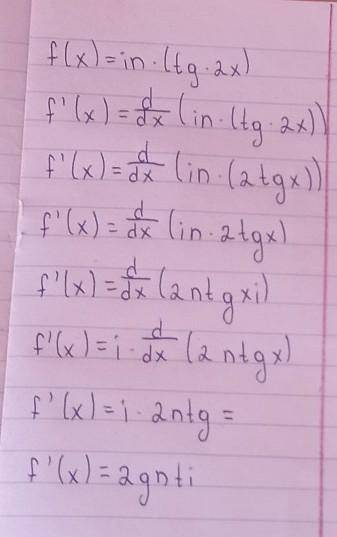 f(x)=in·(tg·2x)
f'(x)=d/dx(in·(tg·2x))
f'(x)=d/dx(in·(2tgx))
f'(x)=d/dx(in·2tgx)
f'(x)=d/dx(2ntgxi)
f'(x)=i·d/dx(2ntgx)
f'(x)=i·2ntg=
f'(x)=2gnti